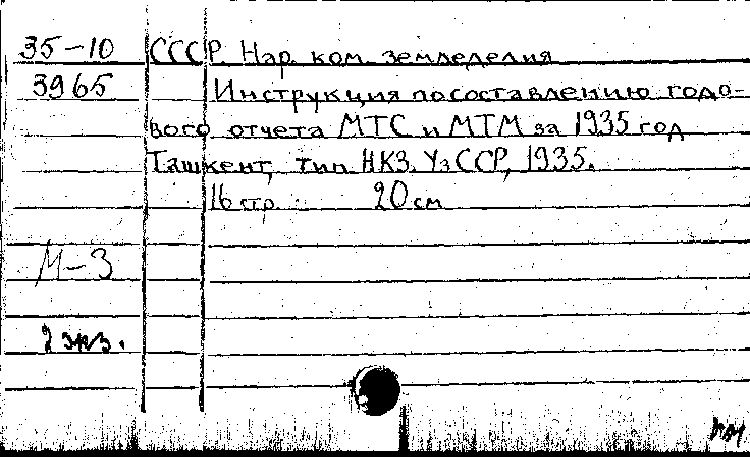 35-10 СССР. Нар. ком. земледелия
3965 Инструкция по составлению годо-
вого отчета МТС и МТМ за 1935 год
Ташкент, тип. НКЗ. УзССР, 1935.
16 стр. 20 см
М-3
2 экз.